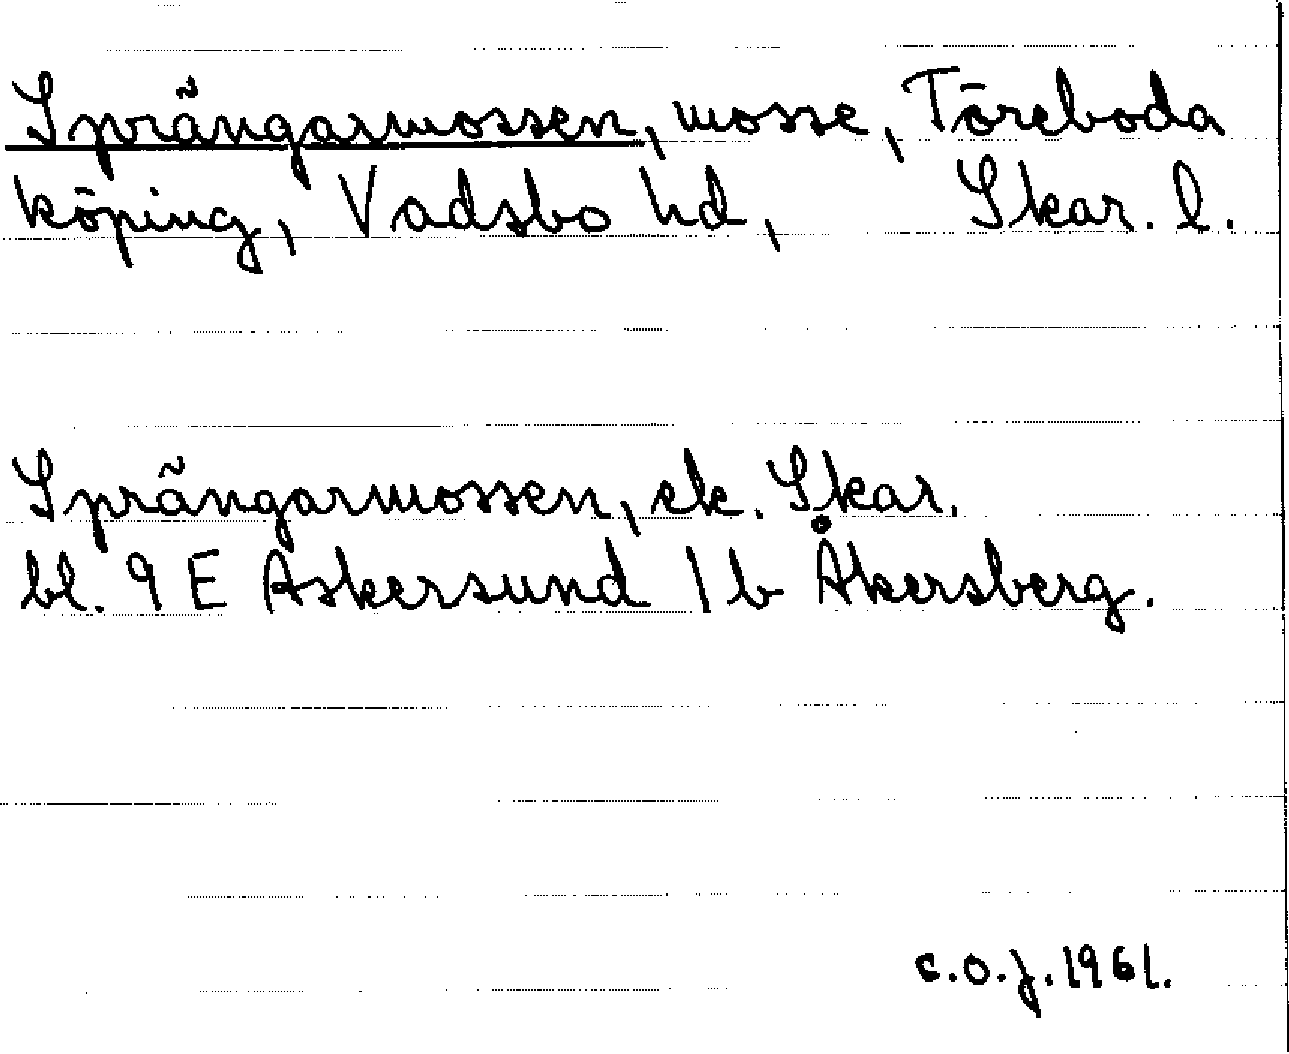 Sprängarmossen, mosse, Töreboda
köping, Vadsbo hd, Skar. l.
Sprängarmossen, ek. Skar.
bl. 9 E Askersund 1 b Åkersberg.
c.o.j. 1961.